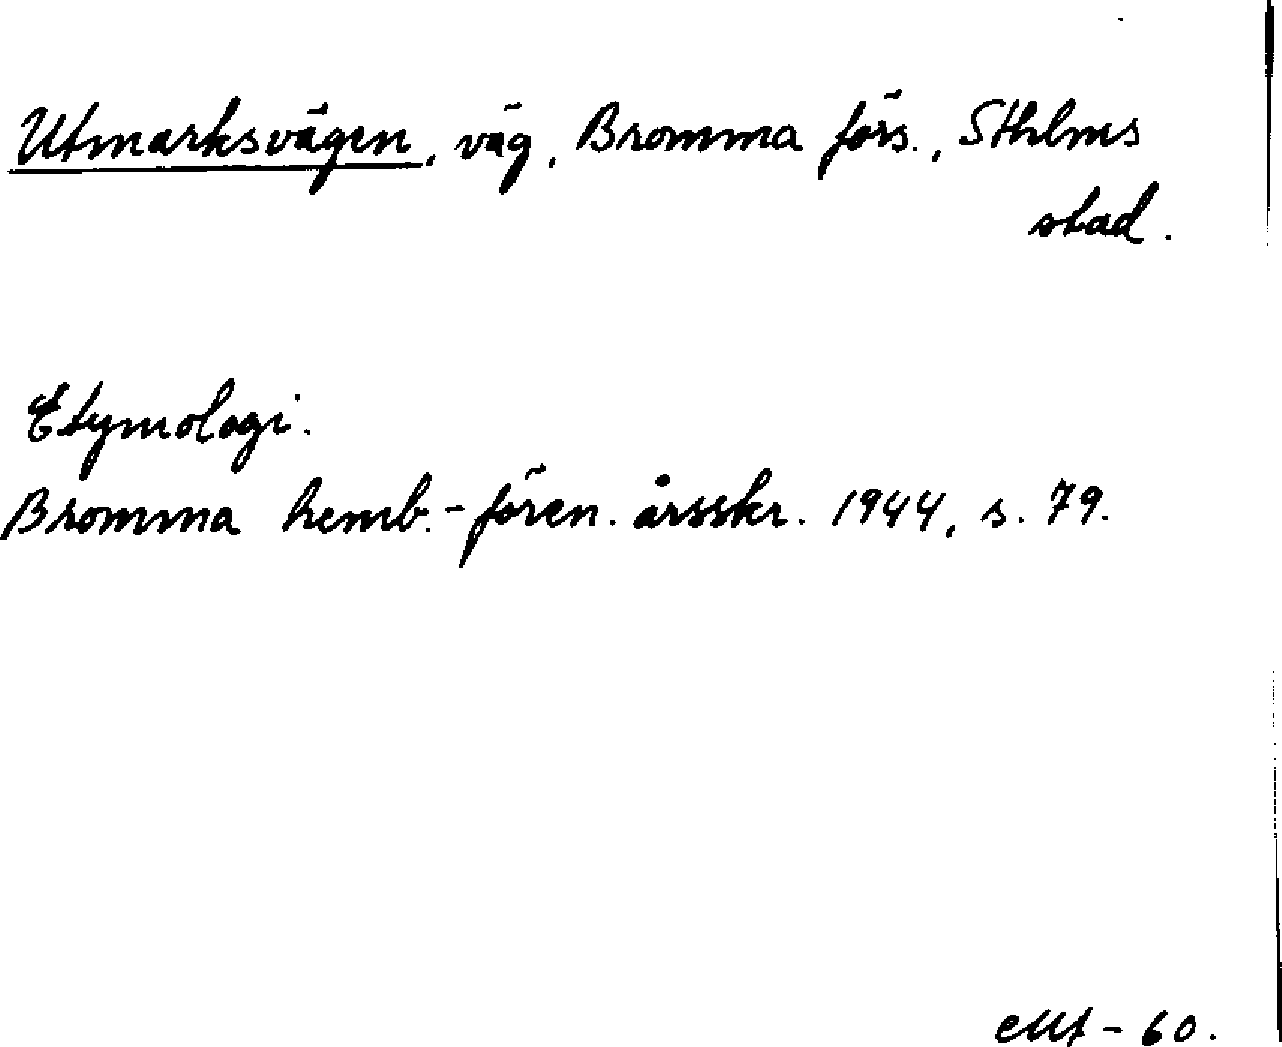 Utmarksvägen, väg, Bromma förs., Sthlms
stad.
Etymologi.
Bromma hemb.-fören. årsskr. 1944, s. 79.
- 60.